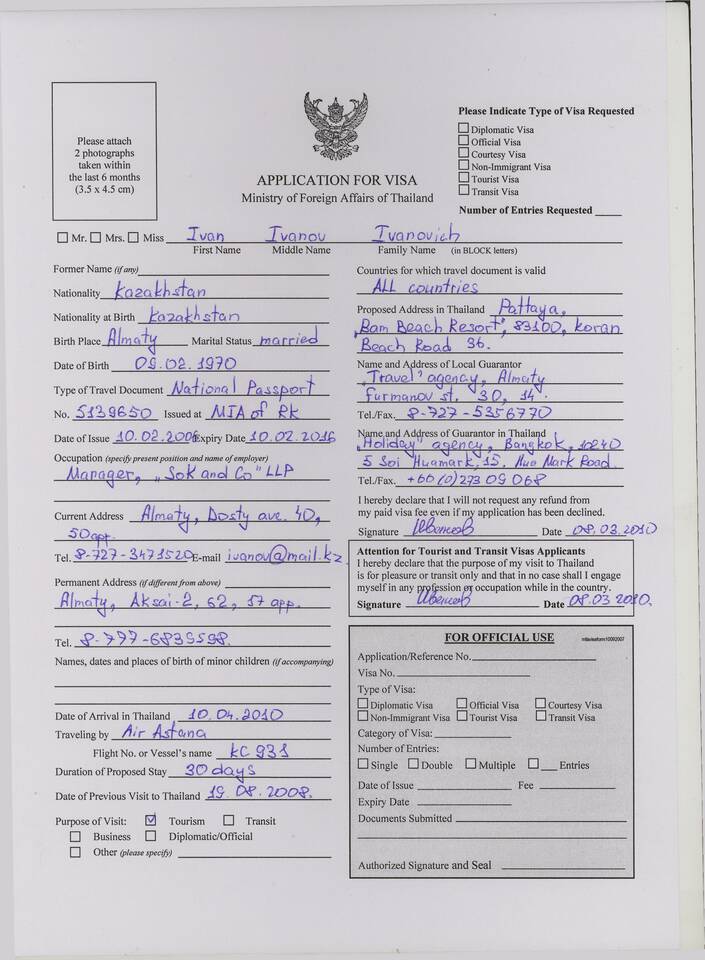 Please attach
2 photographs
taken within
the last 6 months
(3.5 x 4.5 cm)
APPLICATION FOR VISA
Ministry of Foreign Affairs of Thailand
Please Indicate Type of Visa Requested
Diplomatic Visa
Official Visa
Courtesy Visa
Non-Immigrant Visa
Tourist Visa
Transit Visa
Number of Entries Requested
Mr. Mrs. Miss Ivan Ivanov Ivanovich
First Name Middle Name Family Name (in BLOCK letters)
Former Name (if any)
Nationality Kazakhstan
Nationality at Birth Kazakhstan
Birth Place Almaty Marital Status married
Date of Birth 09.02.1970
Type of Travel Document National Passport
No. 5139650 Issued at MIA of RK
Date of Issue 10.02.2006 Expiry Date 10.02.2016
Occupation (specify present position and name of employer)
Manager, „Sok and Co" LLP
Current Address Almaty, Dosty ave. 40,
50 app.
Tel. 8-727-3471520 E-mail ivanov@mail.kz
Permanent Address (if different from above)
Almaty, Aksai-2, 62, 57 app.
Tel. 8-777-6839598.
Names, dates and places of birth of minor children (if accompanying)
Date of Arrival in Thailand 10.04.2010
Traveling by Air Astana
Flight No. or Vessel's name KC 931
Duration of Proposed Stay 30 days
Date of Previous Visit to Thailand 19.08.2008.
Purpose of Visit: Tourism Transit
Business Diplomatic/Official
Other (please specify)
Countries for which travel document is valid
ALL countries
Proposed Address in Thailand Pattaya,
„Bam Beach Resort", 83100, Koran
Beach Road 36.
Name and Address of Local Guarantor
„Travel" agency, Almaty
Furmanov st. 30, 14.
Tel./Fax. 8-727-5356770
Name and Address of Guarantor in Thailand
„Holiday" agency, Bangkok, 10240
5 Soi Huamark, 15, Hua Mark Road.
Tel./Fax. +60 (0) 273 09 068
I hereby declare that I will not request any refund from
my paid visa fee even if my application has been declined.
Signature Date 08.03.2010
Attention for Tourist and Transit Visas Applicants
I hereby declare that the purpose of my visit to Thailand
is for pleasure or transit only and that in no case shall I engage
myself in any profession or occupation while in the country.
Signature Date 08.03 2010.
FOR OFFICIAL USE
Application/Reference No.
Visa No.
Type of Visa:
Diplomatic Visa Official Visa Courtesy Visa
Non-Immigrant Visa Tourist Visa Transit Visa
Category of Visa:
Number of Entries:
Single Double Multiple Entries
Date of Issue Fee
Expiry Date
Documents Submitted
Authorized Signature and Seal